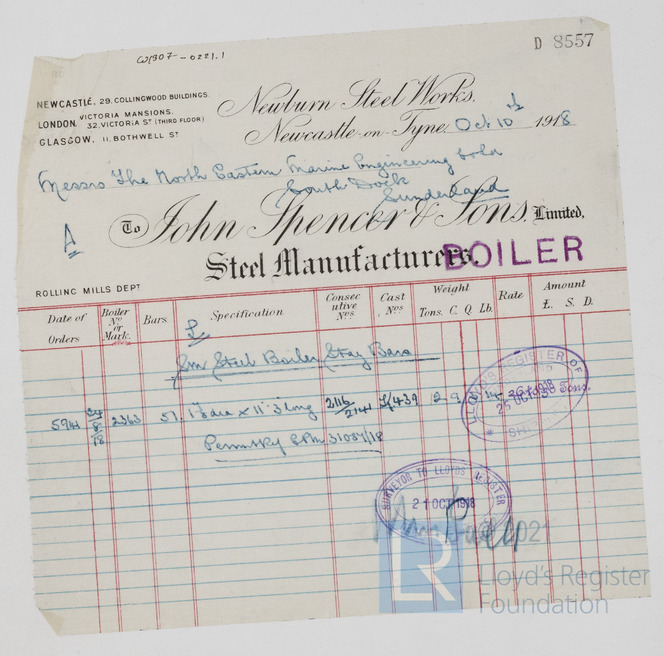 W1807-0221.1
D 8557
NEWCASTLE, 29. COLLINGWOOD BUILDINGS.
LONDON, VICTORIA MANSIONS.
32, VICTORIA ST (THIRD FLOOR)
GLASGOW, 11. BOTHWELL ST
Newburn Steel Works.
Newcastle-on-Tyne. Oct 10th 1918
Messrs The North Eastern Marine Engineering Co Ld
South Dock
Sunderland
To John Spencer & Sons, Limited,
Steel Manufacturers.
BOILER
ROLLING MILLS DEPT
Date of Orders
Boiler No or Mark.
Bars
Specification
Consecutive Nos
Cast Nos
Weight
Tons. C. Q. Lb.
Rate
Amount
£. S. D.
Sm Steel Boiler Stay Bars
5941 24/8/18 2363 51. dia x 11' 3 lng 2116/2141 12 9
31087/18
LLOYDS REGISTER OF SHIPPING
25 OCT 1918
SURVEYOR TO LLOYDS REGISTER
21 OCT 1918
2021
LR
Lloyd's Register
Foundation